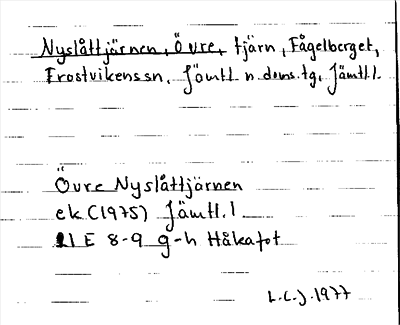 Nyslåttjärnen, Övre, tjärn, Fågelberget,
Frostvikens sn, Jämtl. n. doms.tg, Jämtl.l.
Övre Nyslåttjärnen
ek (1975) Jämtl.l
21 E 8-9 g-h Håkafot
L.C.J. 1977